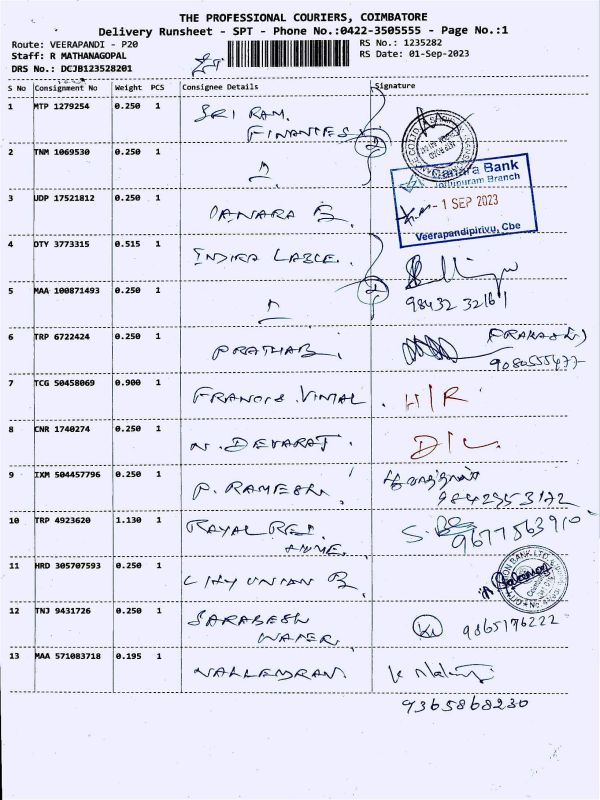 THE PROFESSIONAL COURIERS, COIMBATORE
Delivery Runsheet - SPT - Phone No.:0422-3505555 - Page No.:1
Route: VEERAPANDI - P20
RS No.: 1235282
Staff: R MATHANAGOPAL
RS Date: 01-Sep-2023
DRS No.: DCJB123528201
S No Consignment No Weight PCS Consignee Details Signature
1 MTP 1279254 0.250 1 SRI RAM.
FINANCES
2 TNM 1069530 0.250 1
Canara Bank
Branch
3 UDP 17521812 0.250 1 CANARA B.
- 1 SEP 2023
Veerapandipirivu, Cbe
4 DTY 3773315 0.515 1 INDIRA
98432 32161
5 MAA 100871493 0.250 1
6 TRP 6722424 0.250 1 PRATHAB.
9080555477
7 TCG 50458069 0.900 1 FRANCIS. H/R
8 CNR 1740274 0.250 1 N. DEVARAJ. D/L.
9 IXM 504457796 0.250 1 P. RAMESH
9842953172
10 TRP 4923620 1.130 1 ROYAL
HOME. 9677563910
11 HRD 305707593 0.250 1 CITY UNION B.
12 TNJ 9431726 0.250 1 SARABESH
WATER. 9865176222
13 MAA 571083718 0.195 1
9365868230